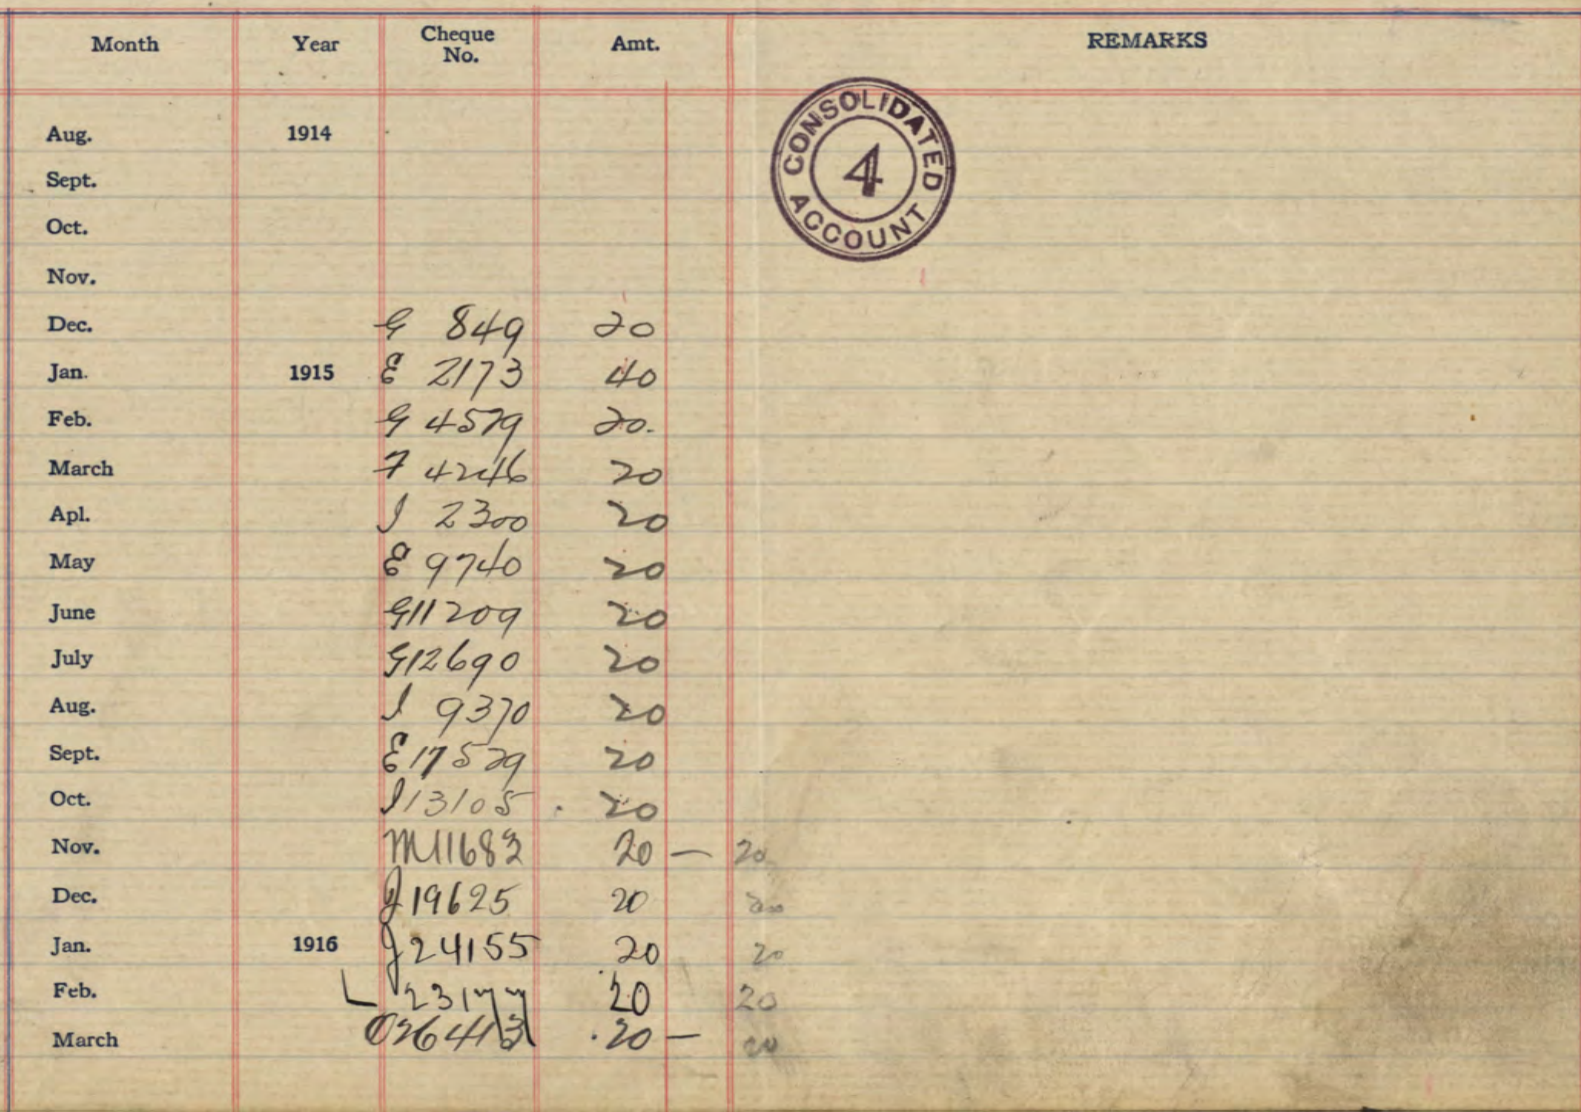 Month Year Cheque No. Amt. REMARKS
CONSOLIDATED ACCOUNT 4
Aug. 1914
Sept.
Oct.
Nov.
Dec. G 849 20
Jan. 1915 E 2173 40
Feb. G 4579 20.
March F 4246 20
Apl. I 2300 20
May E 9740 20
June G11209 20
July G12690 20
Aug. I 9370 20
Sept. E17529 20
Oct. I13105 20
Nov. M11683 20 — 20
Dec. J19625 20 20
Jan. 1916 J24155 20 20
Feb. L 23177 20 20
March 026413 20 — 20